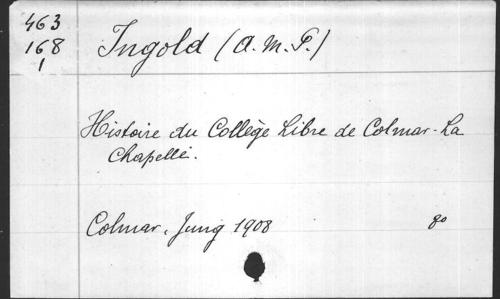 463
168
1
Ingold (A. M. P.)
Histoire du Collège Libre de Colmar-La
Chapelle.
Colmar, Jung 1908 8o